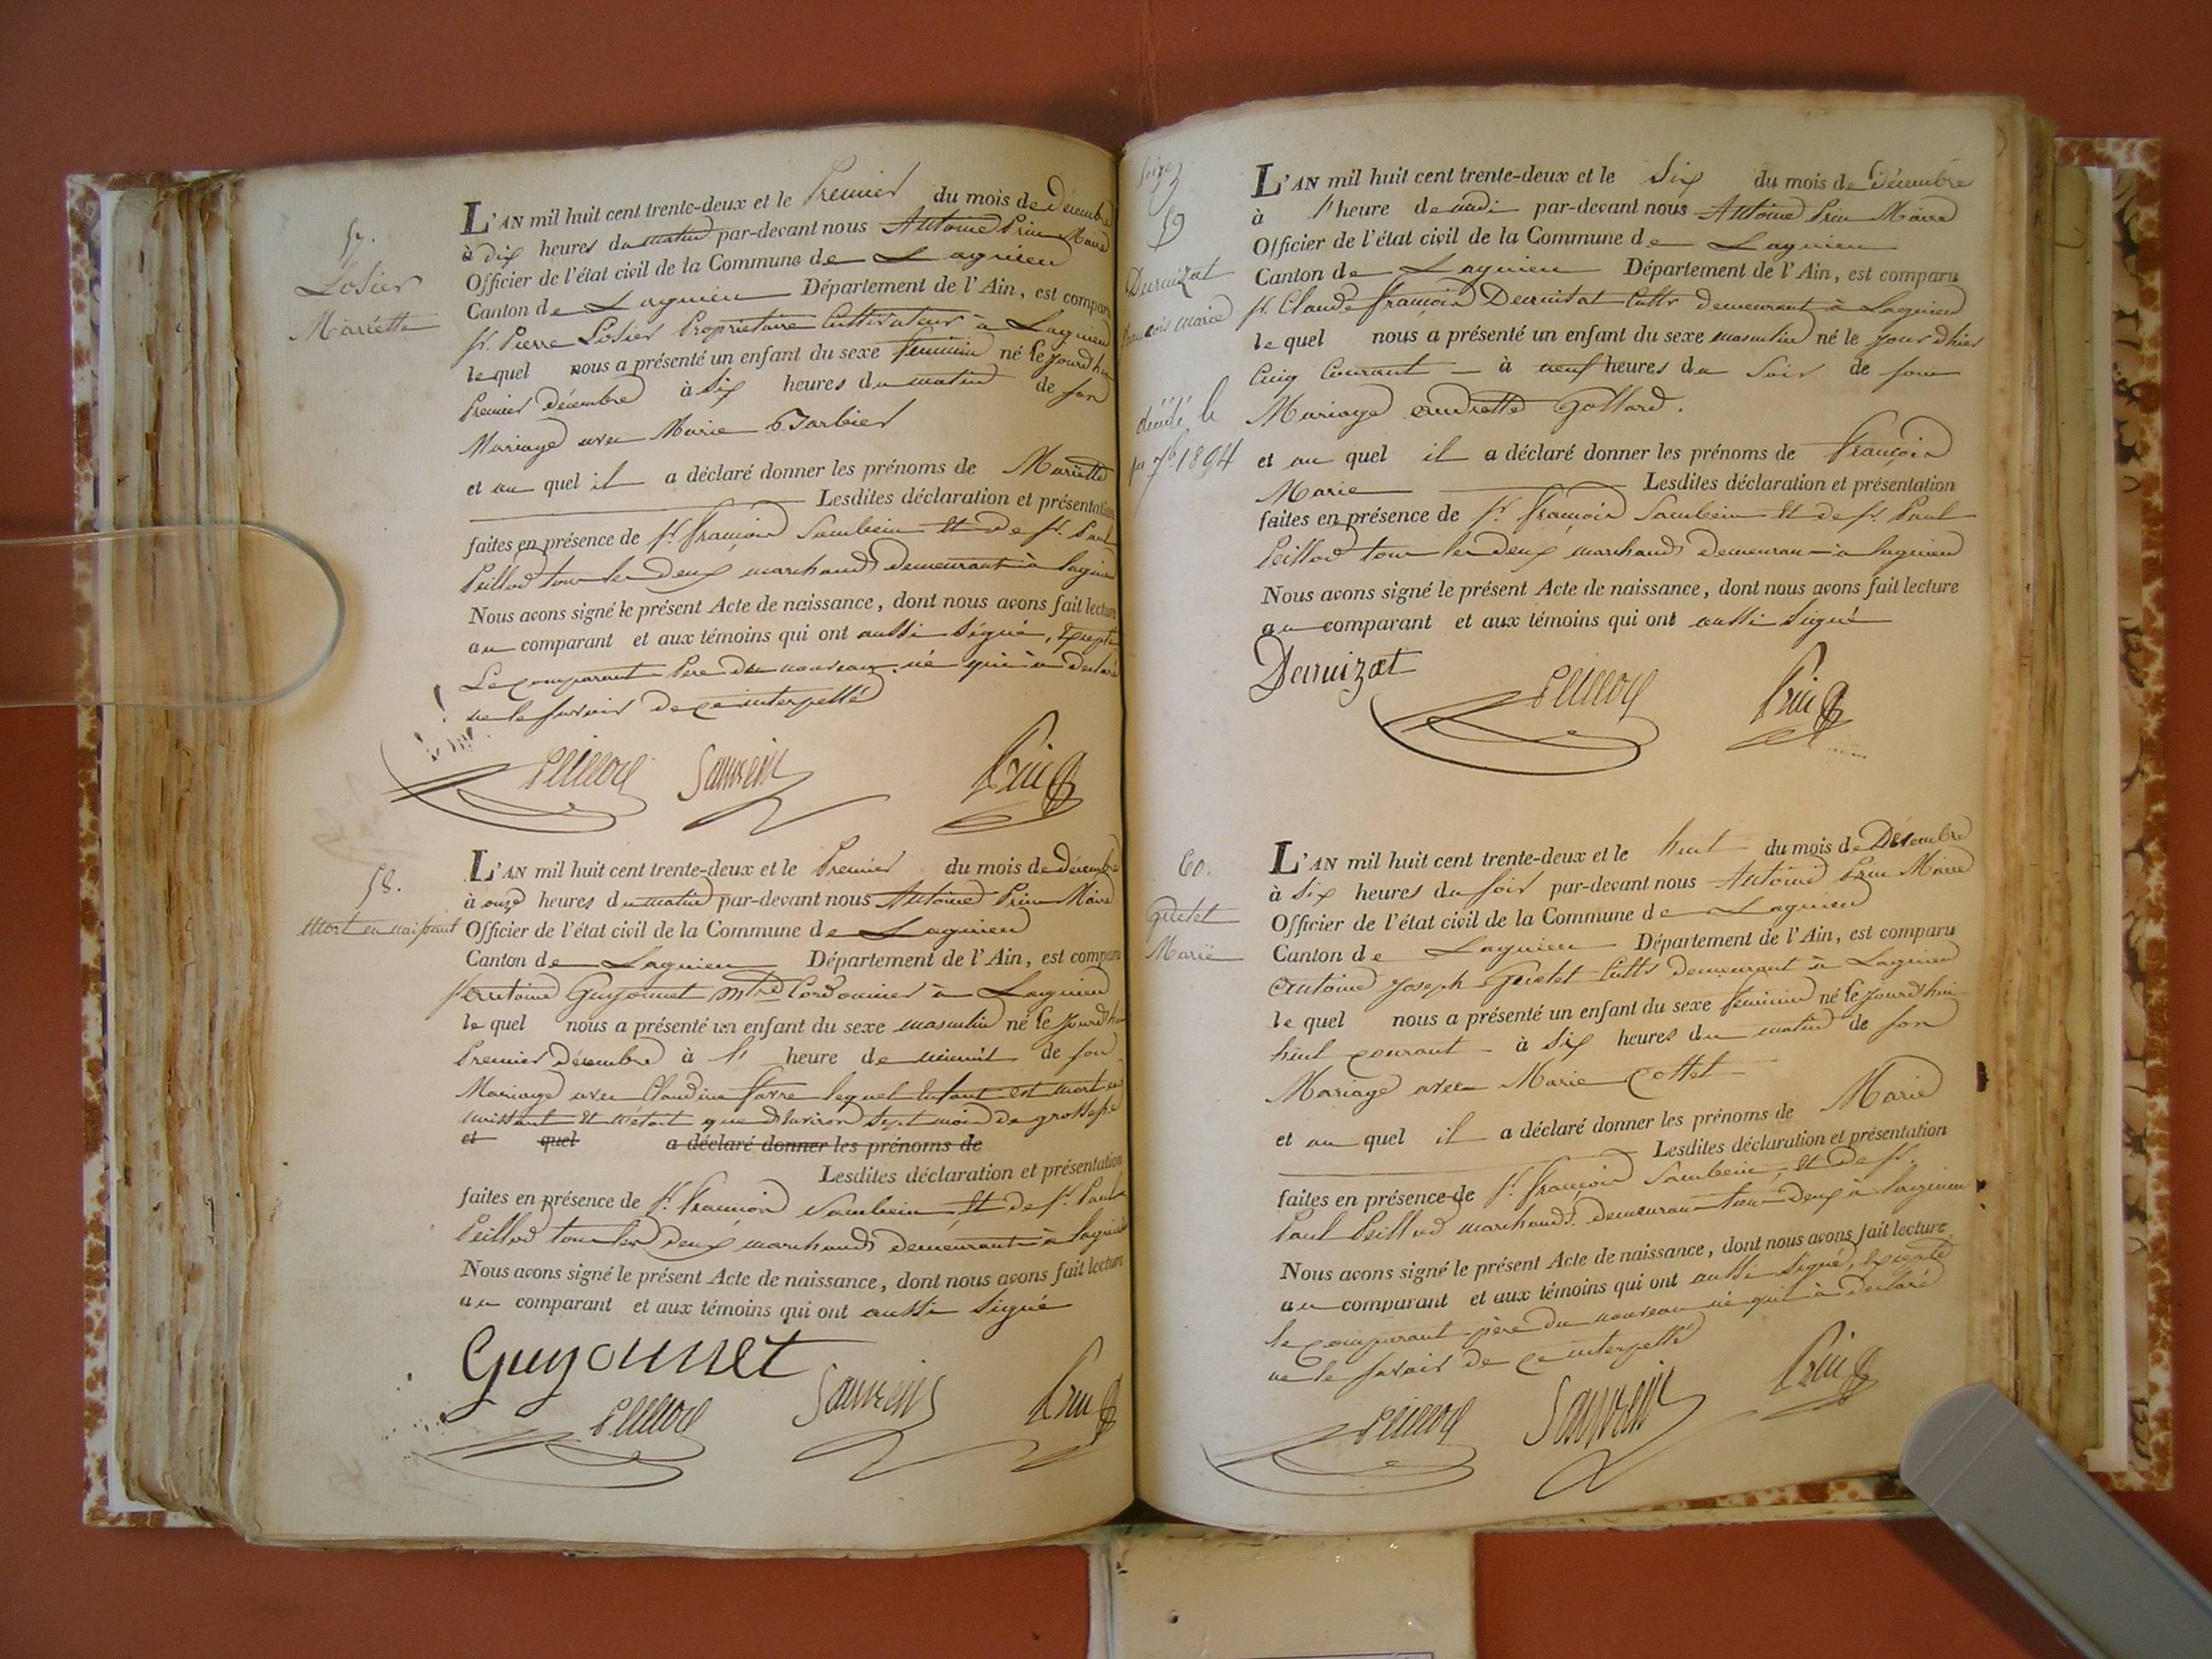 57.
Losier
Mariette
L'AN mil huit cent trente-deux et le Premier du mois de Décembre
à dix heures du matin par-devant nous Antoine Prin Maire
Officier de l'état civil de la Commune de Lagnieu
Canton de Lagnieu Département de l'Ain, est comparu
sr. Pierre Losier Propriétaire Cultivateur à Lagnieu
lequel nous a présenté un enfant du sexe feminin né le jourd'hui
Premier décembre à Six heures du matin de son
Mariage avec Marie Barbier
et au quel il a déclaré donner les prénoms de Mariette
Lesdites déclaration et présentation
faites en présence de sr. françois Sambein et de sr. Paul
Peillod tous les deux marchands demeurant à Lagnieu
Nous avons signé le présent Acte de naissance, dont nous avons fait lecture
au comparant et aux témoins qui ont aussi Signé, Excepté
Le comparant Pere du nouveau né qui a déclaré
ne le savoir de ce interpellé
Peillod
Prin
58.
Mort en naissant
L'AN mil huit cent trente-deux et le Premier du mois de décembre
à onze heures du matin par-devant nous Antoine Prin Maire
Officier de l'état civil de la Commune de Lagnieu
Canton de Lagnieu Département de l'Ain, est comparu
sr. Antoine Guyonnet mtre Cordonnier à Lagnieu
lequel nous a présenté un enfant du sexe masculin né le jourd'hui
Premier décembre à l' heure de minuit de son
Mariage avec Claudine favre lequel Enfant est mort en
naissant et n'étant que d'Environ Sept mois de grossesse
et quel a déclaré donner les prénoms de
Lesdites déclaration et présentation
faites en présence de sr. françois Sambein et de sr. Paul
Peillod tous les deux marchands demeurant à Lagnieu
Nous avons signé le présent Acte de naissance, dont nous avons fait lecture
au comparant et aux témoins qui ont aussi Signé
Guyonnet
Peillod
Prin
59
Deruizat
françois marie
décédé le
7b 1894
L'AN mil huit cent trente-deux et le Six du mois de décembre
à l'heure de midi par-devant nous Antoine Prin Maire
Officier de l'état civil de la Commune de Lagnieu
Canton de Lagnieu Département de l'Ain, est comparu
sr. Claude françois Deruizat Cultr demeurant à Lagnieu
lequel nous a présenté un enfant du sexe masculin né le jour d'hier
Cinq Courant à neuf heures du Soir de son
Mariage Gottard.
et au quel il a déclaré donner les prénoms de françois
Marie Lesdites déclaration et présentation
faites en présence de sr. françois Sambein et de sr. Paul
Peillod tous les deux marchands demeurant à Lagnieu
Nous avons signé le présent Acte de naissance, dont nous avons fait lecture
au comparant et aux témoins qui ont aussi Signé
Deruizat
Peillod
Prin
60.
Guetet
Marie
L'AN mil huit cent trente-deux et le huit du mois de Décembre
à Six heures du soir par-devant nous Antoine Prin Maire
Officier de l'état civil de la Commune de Lagnieu
Canton de Lagnieu Département de l'Ain, est comparu
Antoine Joseph Guetet Cultr demeurant à Lagnieu
le quel nous a présenté un enfant du sexe feminin né le jourd'hui
huit courant à Six heures du matin de son
Mariage avec Marie Cottet
et au quel il a déclaré donner les prénoms de Marie
Lesdites déclaration et présentation
faites en présence de sr. françois Sambein, et de sr.
Paul Peillod marchands demeurant tous deux à Lagnieu
Nous avons signé le présent Acte de naissance, dont nous avons fait lecture
au comparant et aux témoins qui ont aussi Signé, Excepté
le comparant père du nouveau né qui a déclaré
ne le savoir de ce interpellé
Peillod
Prin